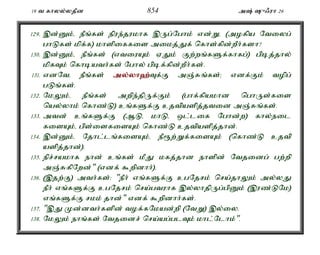 19 வ காலல்லதீன 854 அஷ் ஷுஃரா 26
129. இன்னும், நீங்கள் நிரந்தரமாக இருப்போம் என்று, (அழகிய வேலைப்
பாடுகள் மிக்க) மாளிகைகளை அமைத்துக் கொள்கின்றீர்களா!
130. இன்னும், நீங்கள் (எவரையும் ஏதும் குற்றங்களுக்காகப்) பிடித்தால்
மிகவும் கொடியவர்கள் போல் பிடிக்கின்றீர்கள்.
131. எனவே, நீங்கள் அல்லாஹ்வுக்கு அஞ்சுங்கள்; எனக்கும் வழிப்
படுங்கள்.
132. மேலும், நீங்கள் அறிந்திருக்கும் (பாக்கியமான பொருள்களை
யெல்லாம் கொண்டு) உங்களுக்கு உதவியளித்தவனை அஞ்சுங்கள்.
133. அவன் உங்களுக்கு (ஆடு, மாடு, ஒட்டகை போன்ற) கால்நடை
களையும், பிள்ளைகளையும் கொண்டு உதவியளித்தான்.
134. இன்னும், தோட்டங்களையும், நீரூற்றுக்களையும் (கொண்டு உதவி
யளித்தான்)
135. நிச்சயமாக நான் உங்கள் மீது மகத்தான நாளின் வேதனைப் பற்றி
அஞ்சுகிறேன்" (எனக் கூறினார்).
136. (இதற்கு) அவர்கள்: "நீர் எங்களுக்கு உபதேசம் செய்தாலும் அல்லது
நீர் எங்களுக்கு உபதேசம் செய்பவராக இல்லாதிருப்பினும் (இரண்டுமே)
எங்களுக்கு சமம் தான்" எனக் கூறினார்கள்.
137. "இது முன்னவர்களின் வழக்கமேயன்றி (வேறு) இல்லை.
138. மேலும் நாங்கள் வேதனைச் செய்யப்படவும் மாட்டோம்".